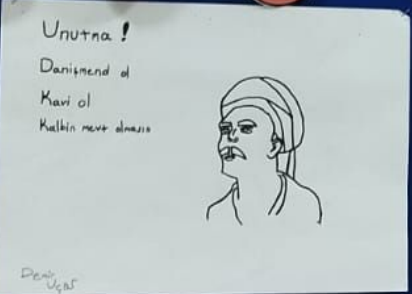 Unutma !
Danişmend ol
Kavi ol
Kalbin mevt olmasın
Deniz
Uçar